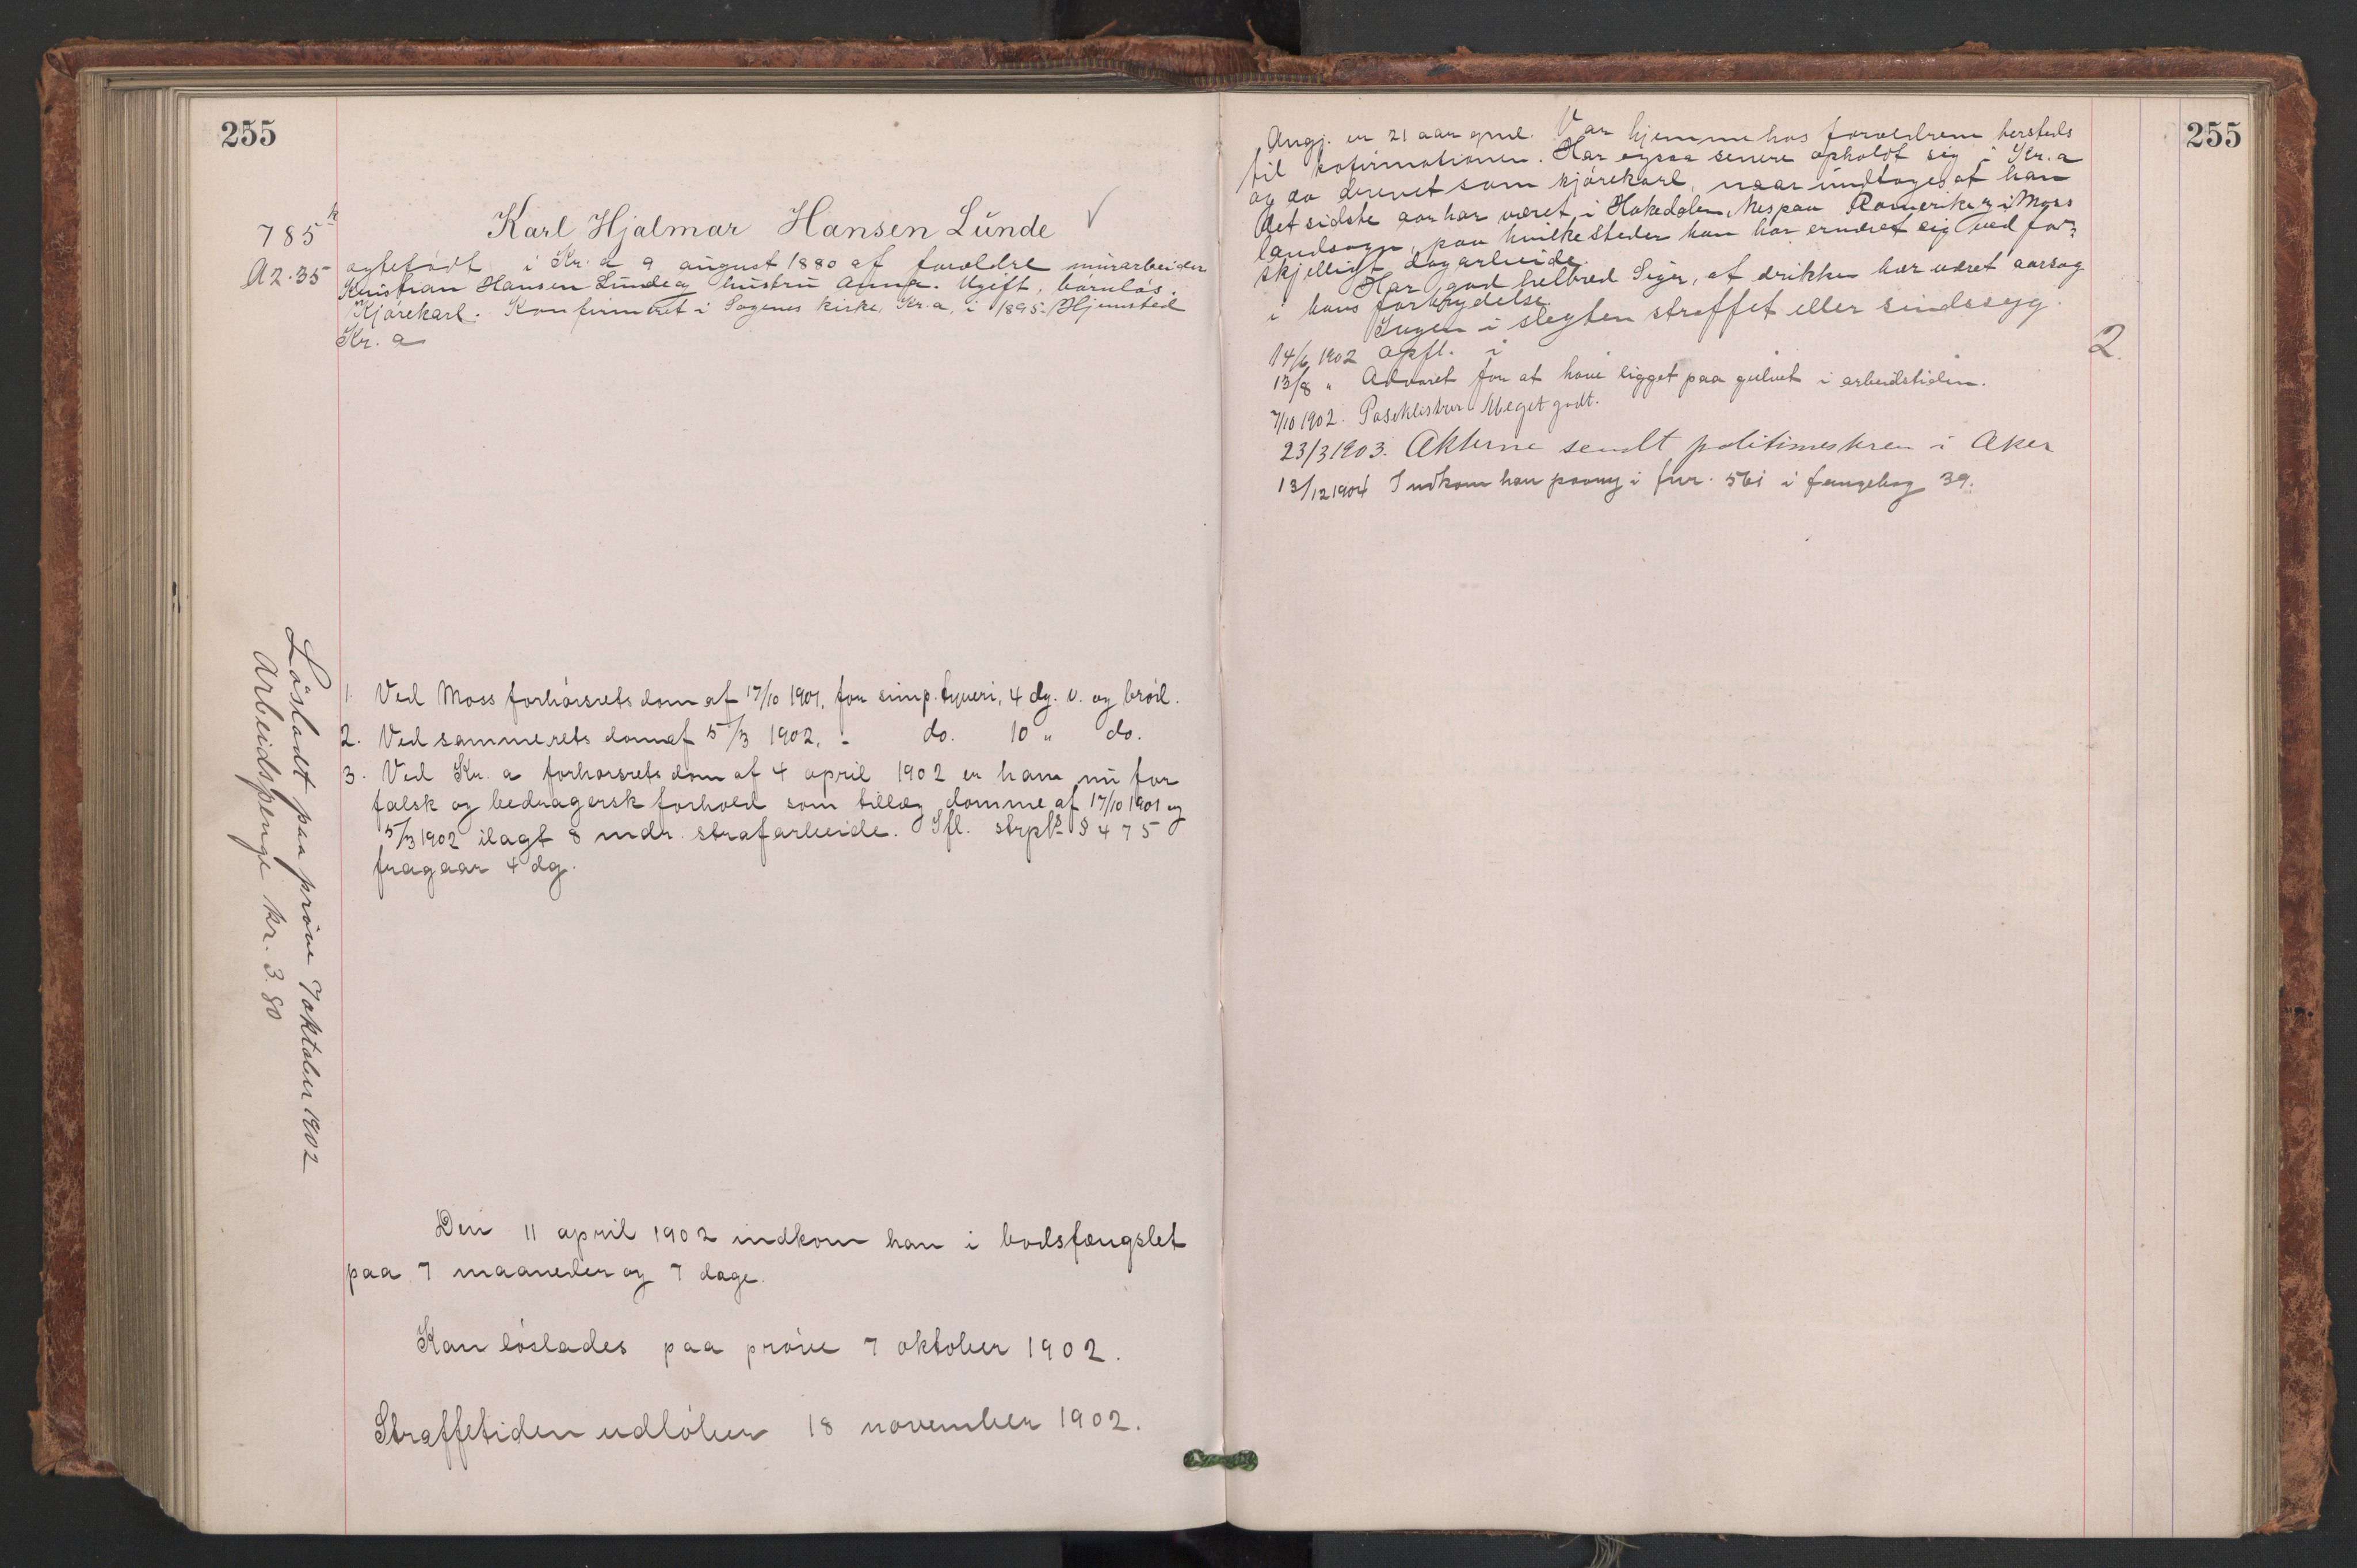 255
785 k
A2.35
Karl Hjalmar Hansen Lunde
ægtefødt i Kr.a 9 august 1880 af forældre murarbeider
Kristian Hansen Lunde og hustru Anna. Ugift, barnløs.
Kjørekarl. Konfirmeret i Sagenes kirke, Kr.a, i 1895. Hjemsted
Kr.a
Løsladt paa prøve 7 oktober 1902
Arbeidspenge kr. 3.80
1. Ved Moss forhørsrets dom af 17/10 1901, for simp. tyveri, 4 dg. v. og brød.
2. Ved samme rets dom af 5/3 1902, - do. 10 " do.
3. Ved Kr.a forhørsrets dom af 4 april 1902 er han nu for
falsk og bedragersk forhold som tillæg domme af 17/10 1901 og
5/3 1902 ilagt 8 mdr. strafarbeide. Ifl. strpl's § 475
fragaar 4 dg.
Den 11 april 1902 indkom han i bodsfængslet
paa 7 maaneder og 7 dage.
Kan løslades paa prøve 7 oktober 1902.
Straffetiden udløber 18 november 1902.
255
Angj. er 21 aar gml. Var hjemme hos forældrene hersteds
til kofirmationen. Har ogsaa senere opholdt sig i Kr.a
og da drevet som kjørekarl, naar undtages at han
det sidste aar har været i Hakedalen, Nes paa Romerike og i Moss
landsogn, paa hvilke steder han har ernæret sig ved for=
skjelligt dagarbeide.
Har god helbred. Siger, at drikken har været aarsag
i hans forbrydelse.
Ingen i slegten straffet eller sindssyg.
14/6 1902 opfl. i 2.
13/8 " Advaret for at have ligget paa gulvet i arbeidstiden.
7/10 1902. Meget godt.
23/3 1903. Akterne sendt politimesteren i Aker
13/12 1904 Indkom han paany i fnr. 561 i fangebog 39.